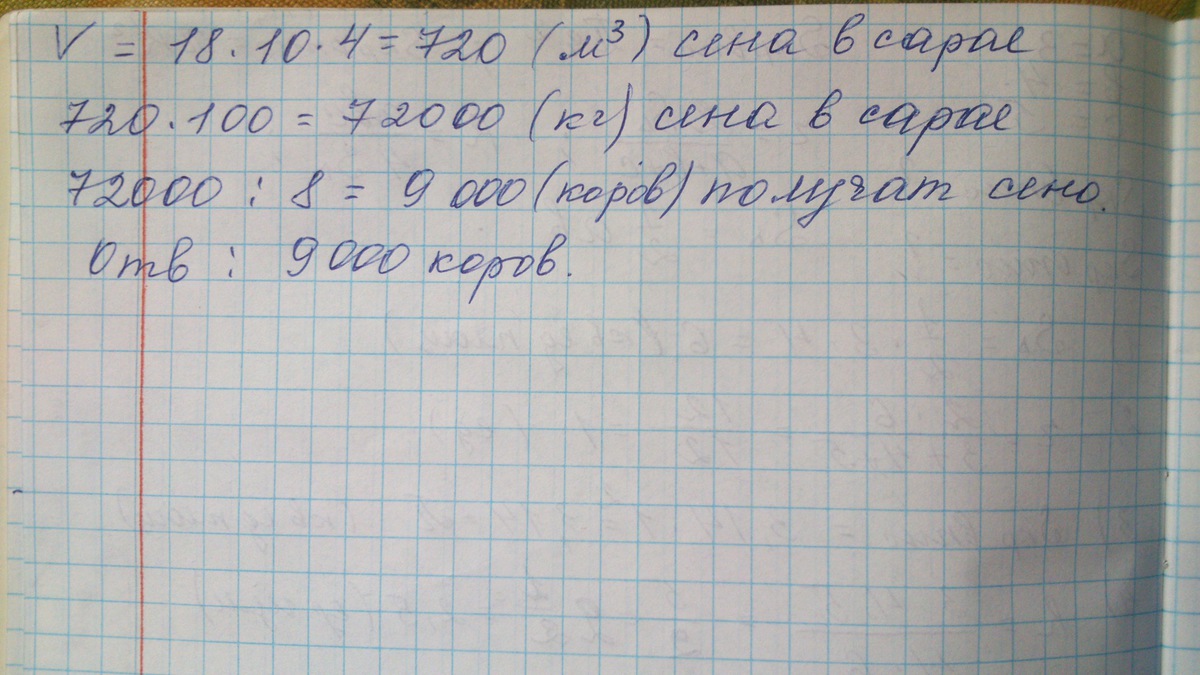 V = 18·10·4 = 720 (м³) сена в сарае
720·100 = 72000 (кг) сена в сарае
72000 : 8 = 9 000 (коров) получат сено.
Отв : 9000 коров.